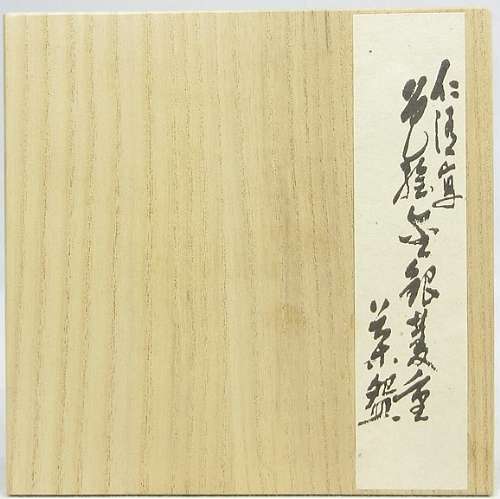 仁清写
色絵金銀菱重
茶盌